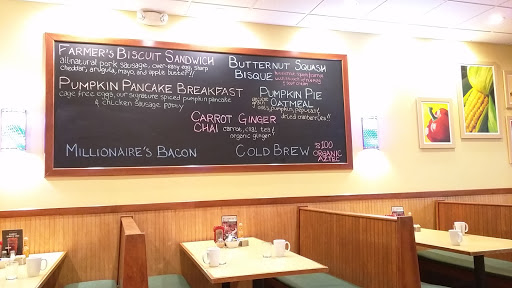 Farmer's Biscuit Sandwich
all-natural pork sausage, over-easy egg, sharp
cheddar, arugula, mayo, and apple butter!!
Pumpkin Pancake Breakfast
cage free eggs, our signature spiced pumpkin pancake
& chicken sausage patty
Butternut Squash
Bisque
Pumpkin Pie
Oatmeal
dried cranberries!!
Carrot Ginger
Chai
carrot, chai tea &
organic ginger
Millionaire's Bacon
Cold Brew
100
Organic
Aztec